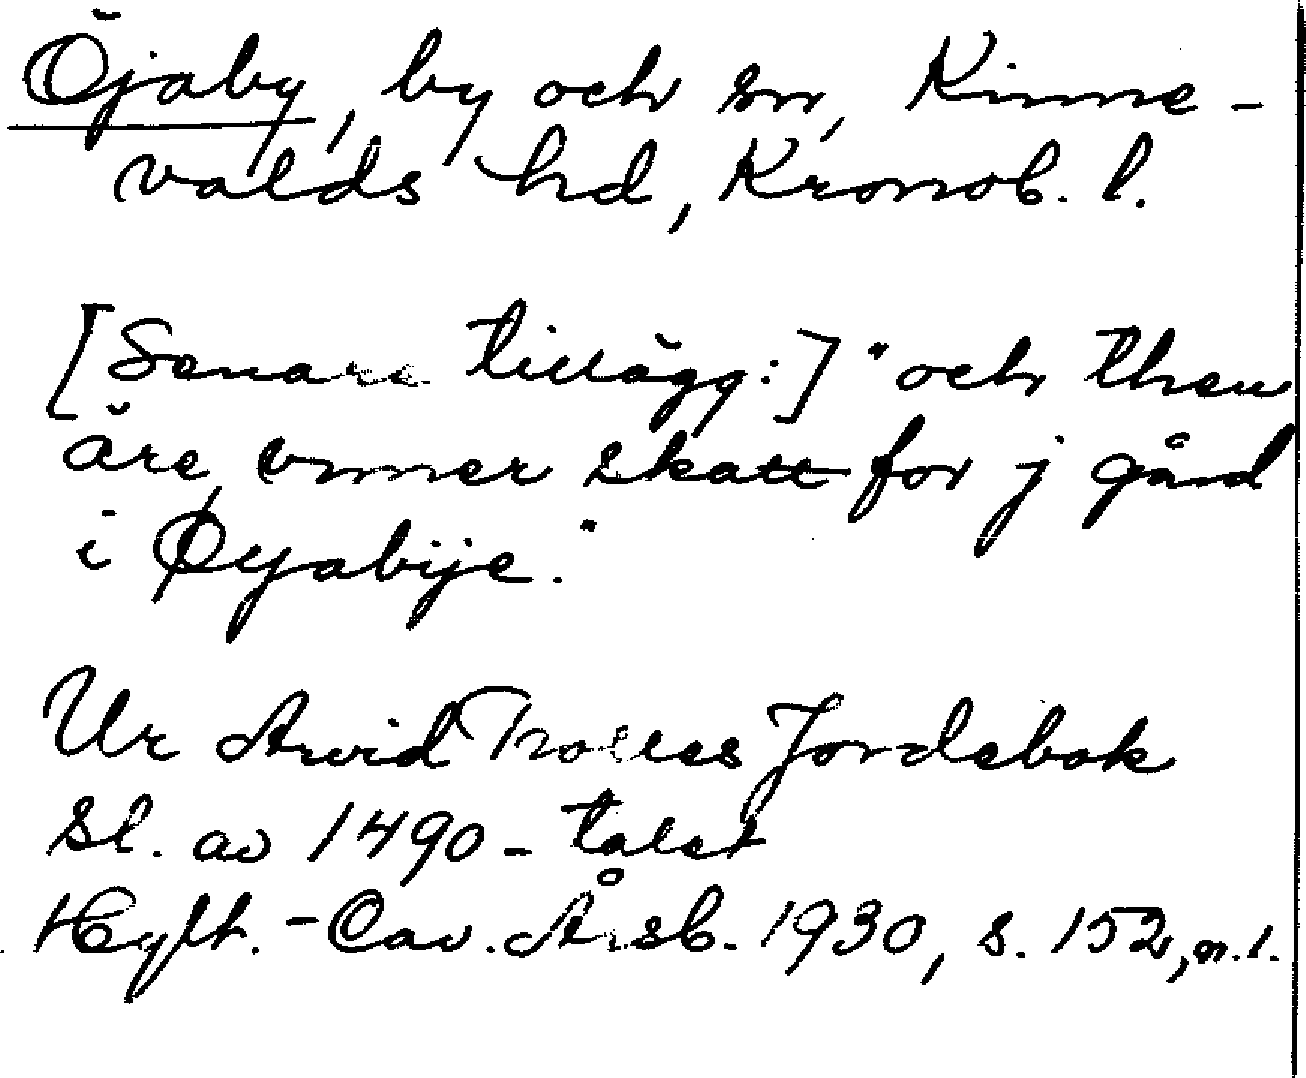 Öjaby, by och sn, Kinne-
valds hd, Kronob. l.
[Senare tillägg:] "och then
äre vmmer skatt for j gård
i Øyabije."
Ur Arvid Trolles Jordebok
sl. av 1490-talet
Hylt.-Cav. Årsb. 1930, s. 152, n. 1.